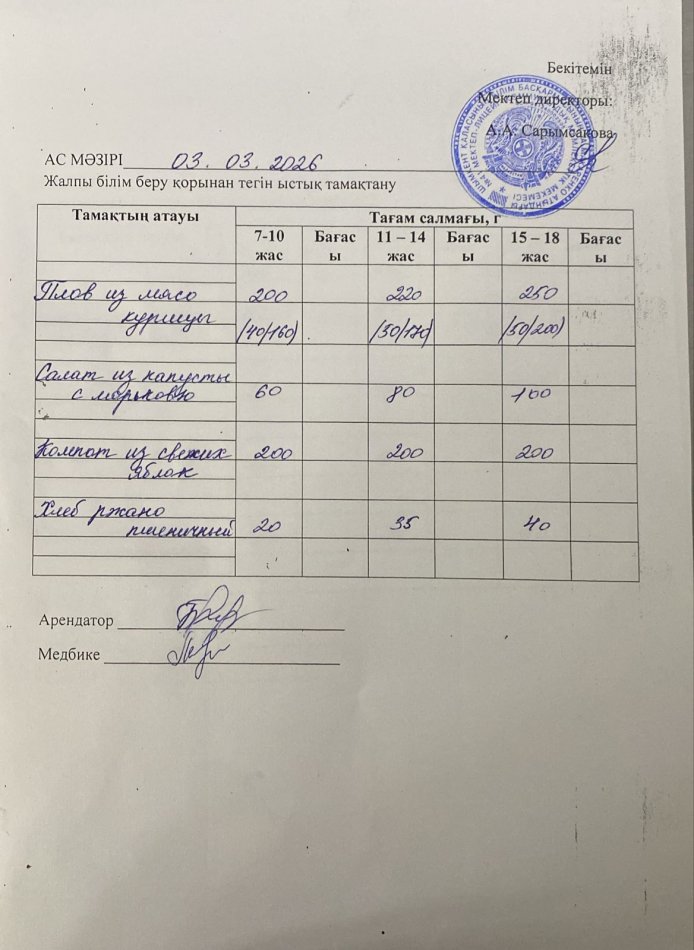 Бекітемін
Мектеп директоры:
А.А. Сарымсакова
АС МӘЗІРІ 03. 03. 2026
Жалпы білім беру қорынан тегін ыстық тамақтану
Тамақтың атауы Тағам салмағы, г
7-10 жас Бағасы 11 – 14 жас Бағасы 15 – 18 жас Бағасы
Плов из мясо 200 220 250
курицы (40/160) (50/170) (50/200)
Салат из капусты
с морковью 60 80 100
Компот из свежих 200 200 200
яблок
Хлеб ржано
пшеничный 20 35 40
Арендатор
Медбике